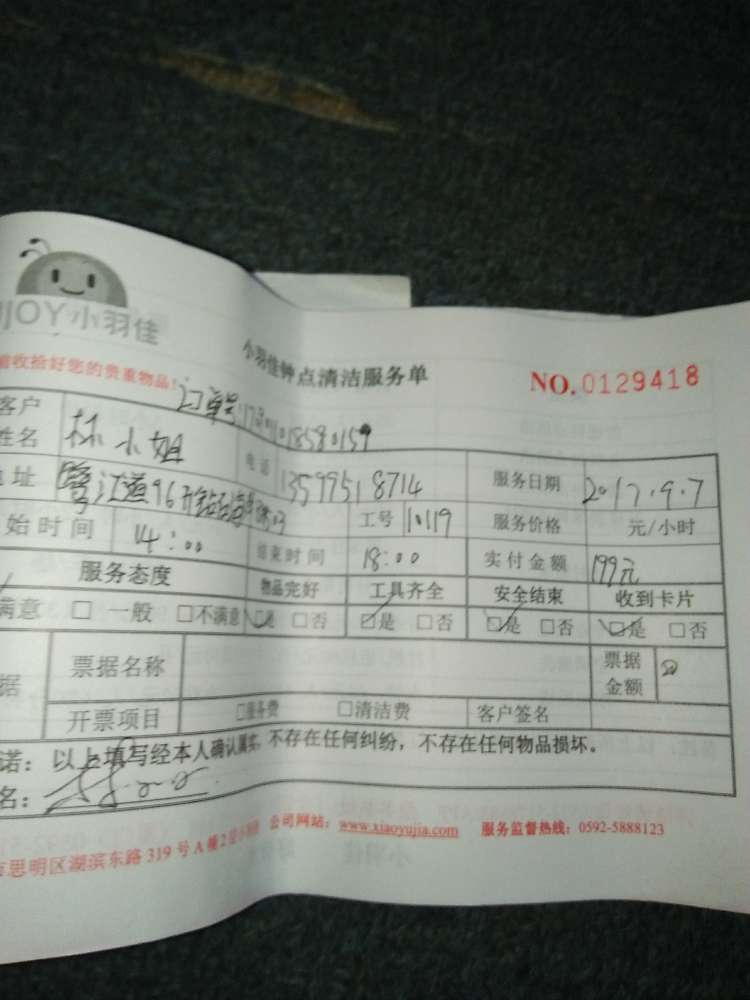 JOY小羽佳
小羽佳钟点清洁服务单
NO.0129418
收拾好您的贵重物品!
订单号
客户姓名 林小姐 电话 13599518714 服务日期 2017.9.7
址 鹭江道96
始时间 14:00 工号 10119 服务价格 元/小时
结束时间 18:00 实付金额 199元
服务态度 物品完好 工具齐全 安全结束 收到卡片
满意 □一般 □不满意 □是 □否 □是 □否 □是 □否 □是 □否
据 票据名称 票据金额
开票项目 □服务费 □清洁费 客户签名
诺:以上填写经本人确认属实,不存在任何纠纷,不存在任何物品损坏。
名:
市思明区湖滨东路319号A幢2 公司网站:www.xiaoyujia.com 服务监督热线:0592-5888123